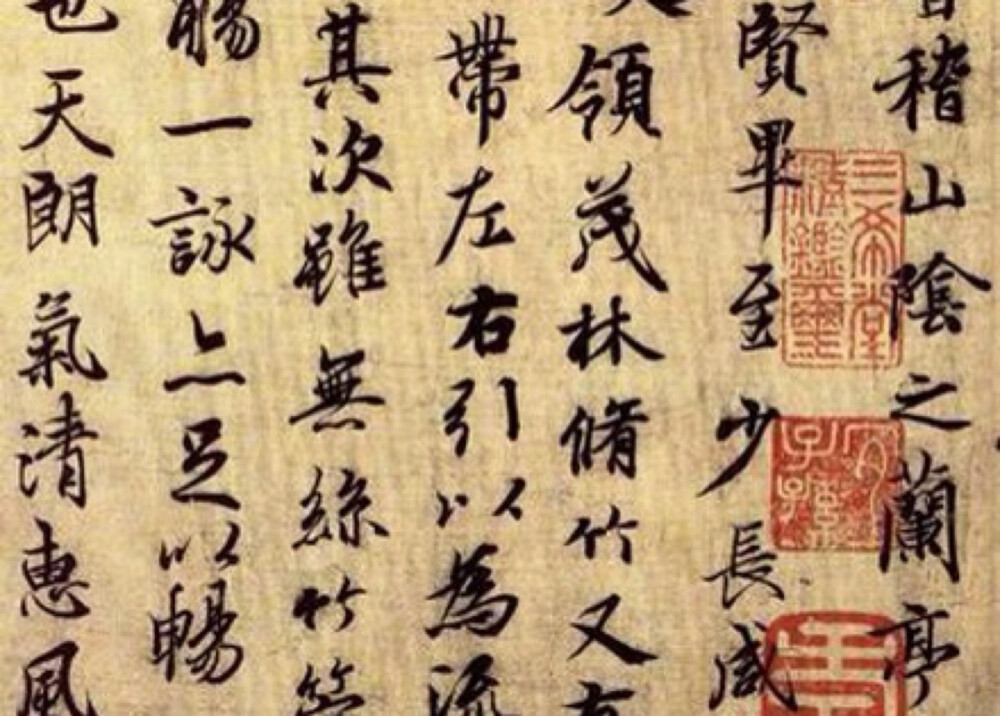 稽山陰之蘭亭
賢畢至少長咸
領茂林脩竹又有
帶左右引以為流
其次雖無絲竹管
觴一詠亦足以暢
也天朗氣清惠風
三希堂精鑑璽
宜子孫